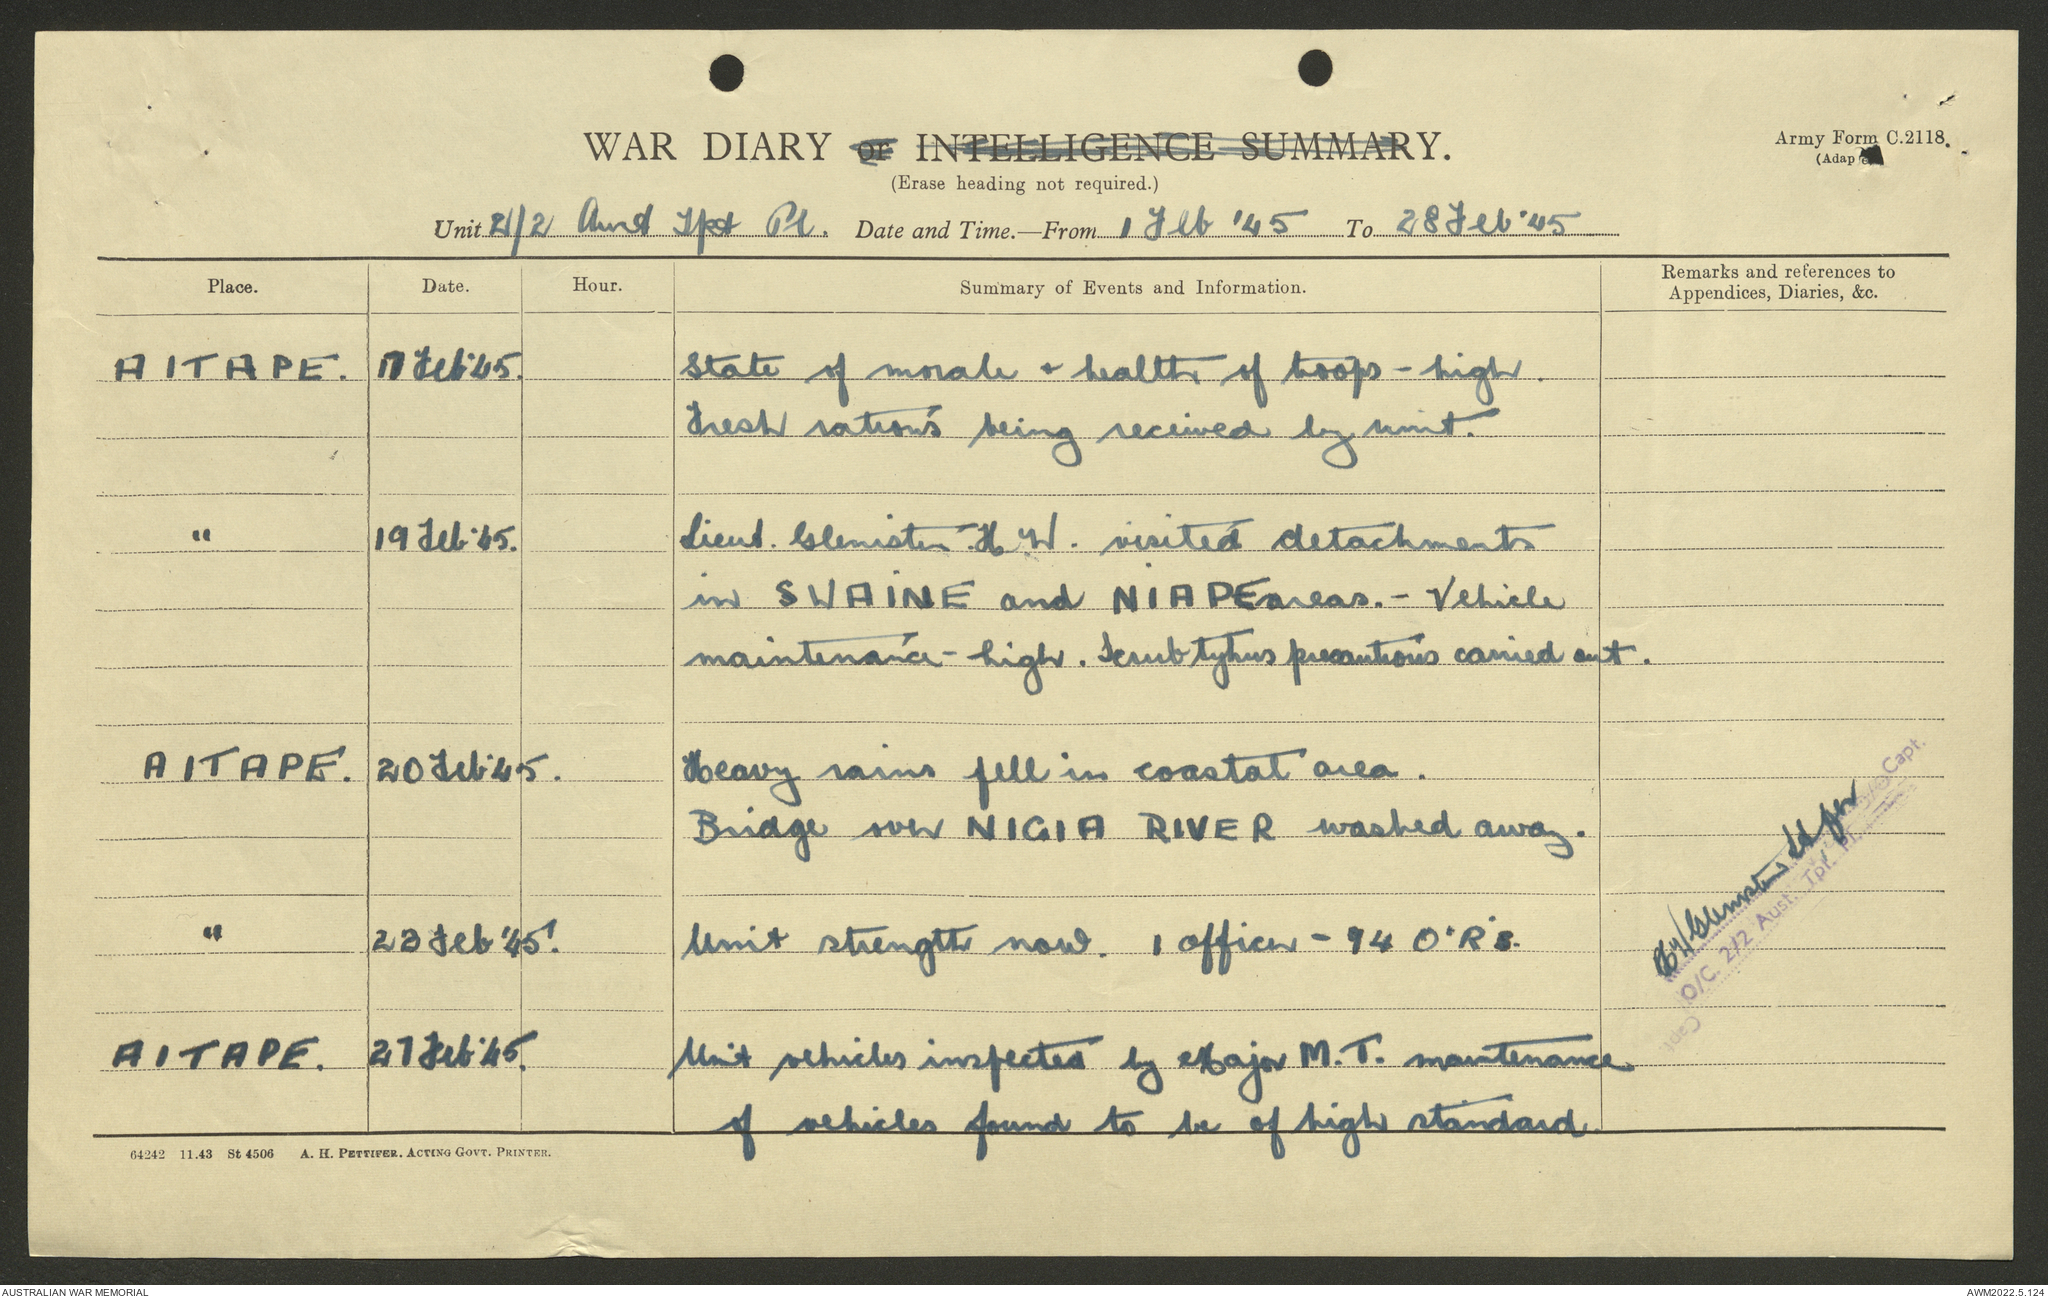 WAR DIARY or INTELLIGENCE SUMMARY.
Army Form C.2118.
(Erase heading not required.)
Unit 2/2 Aust Tpt Pl. Date and Time.—From 1 Feb '45 To 28 Feb '45
Place. Date. Hour. Summary of Events and Information. Remarks and references to
Appendices, Diaries, &c.
AITAPE. 17 Feb '45. State of morale + health of troops - high.
Fresh rations being received by unit.
" 19 Feb '45. Lieut. Glenister H W. visited detachments
in SWAINE and NIAPE areas. - Vehicle
maintenance - high. Scrub tyhus precautions carried out.
AITAPE. 20 Feb '45. Heavy rains fell in coastal area.
Bridge over NIGIA RIVER washed away.
" 23 Feb '45. Unit strength now. 1 officer - 94 O'R's.
AITAPE. 27 Feb '45. Unit vehicles inspected by Major M.T. maintenance
of vehicles found to be of high standard.
HW Glenister Lt for
Capt.
O/C. 2/2 Aust. Tpt. Pl.
Capt
64242 11.43 St 4506 A. H. PETTIFER. ACTING GOVT. PRINTER.
AUSTRALIAN WAR MEMORIAL
AWM2022.5.124